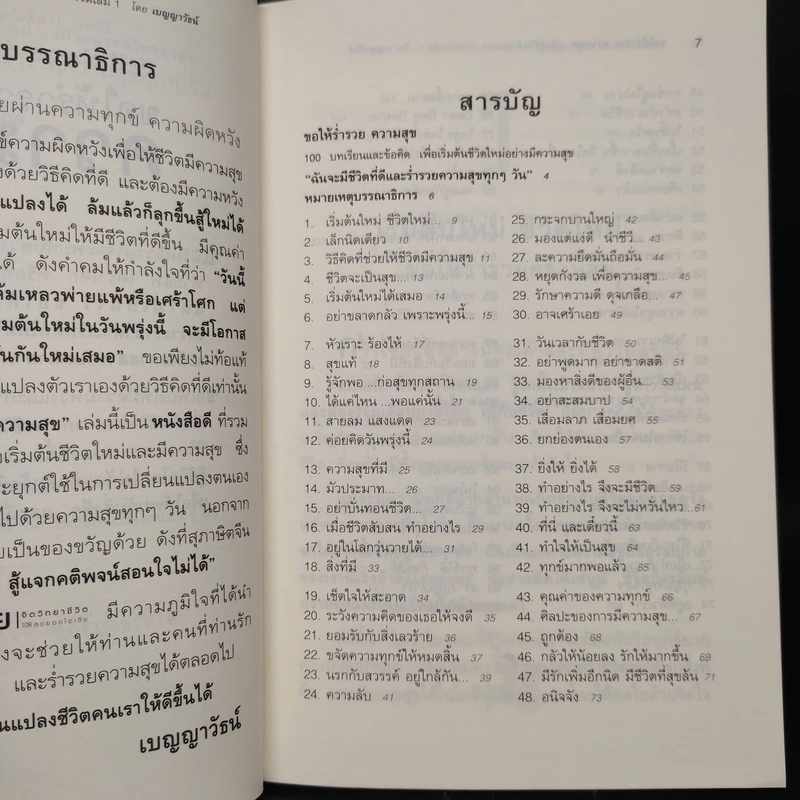 เล่ม 1 โดย เบญญาวัธน์
บรรณาธิการ
ผ่านความทุกข์ ความผิดหวัง
ความผิดหวังเพื่อให้ชีวิตมีความสุข
ด้วยวิธีคิดที่ดี และต้องมีความหวัง
แปลงได้ ล้มแล้วก็ลุกขึ้นสู้ใหม่ได้
ต้นใหม่ให้มีชีวิตที่ดีขึ้น มีคุณค่า
ได้ ดังคำคมให้กำลังใจที่ว่า "วันนี้
ล้มเหลวพ่ายแพ้หรือเศร้าโศก แต่
ต้นใหม่ในวันพรุ่งนี้ จะมีโอกาส
กันใหม่เสมอ" ขอเพียงไม่ท้อแท้
แปลงตัวเราเองด้วยวิธีคิดที่ดีเท่านั้น
ความสุข" เล่มนี้เป็น หนังสือดี ที่รวม
เริ่มต้นชีวิตใหม่และมีความสุข ซึ่ง
ประยุกต์ใช้ในการเปลี่ยนแปลงตนเอง
ไปด้วยความสุขทุกๆ วัน นอกจาก
เป็นของขวัญด้วย ดังที่สุภาษิตจีน
สู้แจกคติพจน์สอนใจไม่ได้"
จิตวิทยาชีวิต
มีความภูมิใจที่ได้นำ
จะช่วยให้ท่านและคนที่ท่านรัก
และร่ำรวยความสุขได้ตลอดไป
แปลงชีวิตคนเราให้ดีขึ้นได้
เบญญาวัธน์
7
สารบัญ
ขอให้ร่ำรวย ความสุข
100 บทเรียนและข้อคิด เพื่อเริ่มต้นชีวิตใหม่อย่างมีความสุข
"ฉันจะมีชีวิตที่ดีและร่ำรวยความสุขทุกๆ วัน" 4
หมายเหตุบรรณาธิการ 6
1. เริ่มต้นใหม่ ชีวิตใหม่... 9
2. เล็กนิดเดียว 10
3. วิธีคิดที่ช่วยให้ชีวิตมีความสุข 11
4. ชีวิตจะเป็นสุข... 13
5. เริ่มต้นใหม่ได้เสมอ 14
6. อย่าขลาดกลัว เพราะพรุ่งนี้... 15
7. หัวเราะ ร้องไห้ 17
8. สุขแท้ 18
9. รู้จักพอ ...ก่อสุขทุกสถาน 19
10. ได้แค่ไหน ...พอแค่นั้น 21
11. สายลม แสงแดด 23
12. ค่อยคิดวันพรุ่งนี้ 24
13. ความสุขที่มี 25
14. มัวประมาท... 26
15. อย่าบั่นทอนชีวิต... 27
16. เมื่อชีวิตสับสน ทำอย่างไร 29
17. อยู่ในโลกวุ่นวายได้... 31
18. สิ่งที่มี 33
19. เช็ดใจให้สะอาด 34
20. ระวังความคิดของเธอให้จงดี 35
21. ยอมรับกับสิ่งเลวร้าย 36
22. ขจัดความทุกข์ให้หมดสิ้น 37
23. นรกกับสวรรค์ อยู่ใกล้กัน... 39
24. ความลับ 41
25. กระจกบานใหญ่ 42
26. มองแต่แง่ดี นำชีวี... 43
27. ละความยึดมั่นถือมั่น 44
28. หยุดกังวล เพื่อความสุข... 45
29. รักษาความดี ดุจเกลือ... 47
30. อาจเศร้าเอย 49
31. วันเวลากับชีวิต 50
32. อย่าพูดมาก อย่าขาดสติ 51
33. มองหาสิ่งดีของผู้อื่น... 53
34. อย่าสะสมบาป 54
35. เสื่อมลาภ เสื่อมยศ 55
36. ยกย่องตนเอง 57
37. ยิ่งให้ ยิ่งได้ 58
38. ทำอย่างไร จึงจะมีชีวิต... 59
39. ทำอย่างไร จึงจะไม่หวั่นไหว... 61
40. ที่นี่ และเดี๋ยวนี้ 63
41. ทำใจให้เป็นสุข 64
42. ทุกข์มากพอแล้ว 65
43. คุณค่าของความทุกข์ 66
44. ศิลปะของการมีความสุข... 67
45. ถูกต้อง 68
46. กลัวให้น้อยลง รักให้มากขึ้น 69
47. มีรักเพิ่มอีกนิด มีชีวิตที่สุขล้น 71
48. อนิจจัง 73